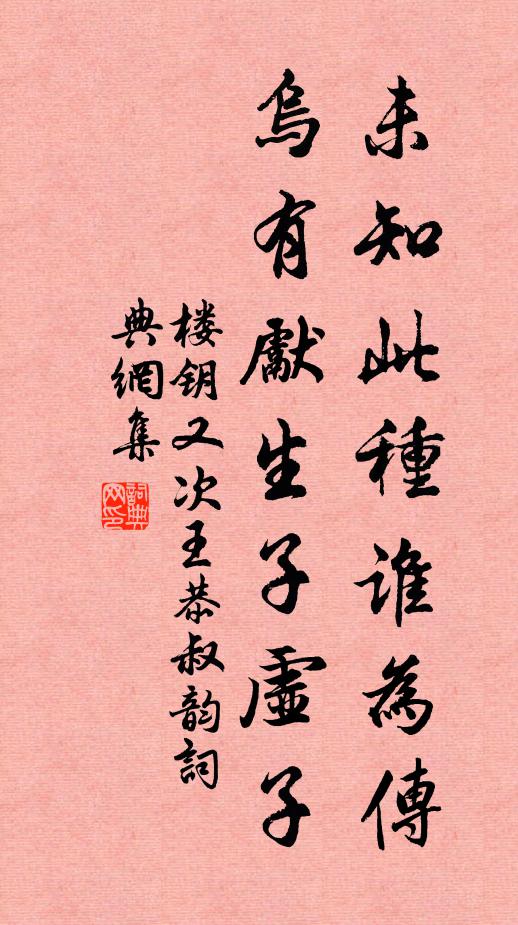 未知此種誰為傳
烏有獻生子虛子
楼钥又次王恭叔韵詞
典網集
詞典网印